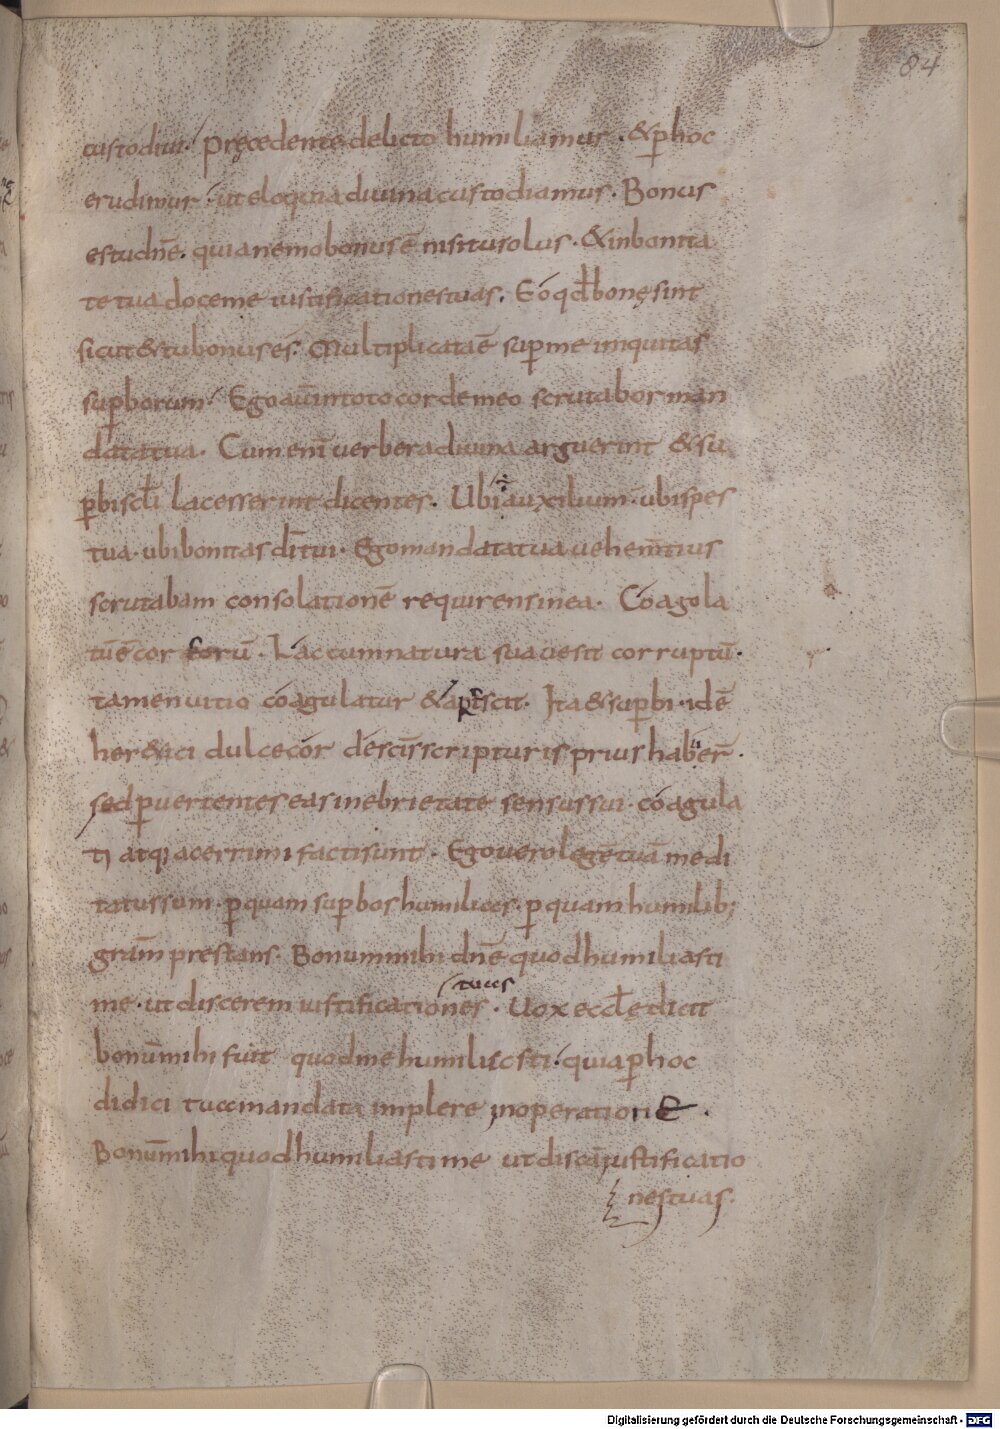 84
custodiui. precedente delicto humiliamur. & ꝑ hoc
erudimur. ut eloquia diuina custodiamus. Bonus
es tu dñe. quia nemo bonus ē nisi tu solus. & in bonita
te tua doce me iustificationes tuas. Eo qđ bonę sint
sicut & tu bonus és. Multiplicata ē suꝑ me iniquitas
suꝑborum. Ego aūt in toto corde meo scrutabor man
data tua. Cum enī uerbera diuina arguerint & su
ꝑbi scłi lacesserint dicentes. Ubi auxilium. ubi spes
tua. ubi bonitas dī tui. Ego mandata tua uehemtius
scrutabam consolationē requirens in ea. Coagola
tū ē cor eorū. Lac cum natura suaue sit corruptū.
tamen uitio coagulatur & Ita & suꝑbi. idē
her&ici dulce cor de scīs scripturis prius haber̄.
sed ꝑuertentes eas in ebrietate sensus sui. coagula
ti atq; acerrimi facti sunt. Ego uero legē tuā medi
tatus sum. ꝑ quam suꝑbos humilias. ꝑ quam humilib;
gratiam prestans. Bonum mihi dñe quod humiliasti
me. ut discerem iustificationes. tuas Uox ecclę dicit
bonū mihi fuit quod me humiliasti. quia ꝑ hoc
didici tua mandata implere in operatione.
Bonū mihi quod humiliasti me ut discā iustificatio
nes tuas.
Digitalisierung gefördert durch die Deutsche Forschungsgemeinschaft - DFG